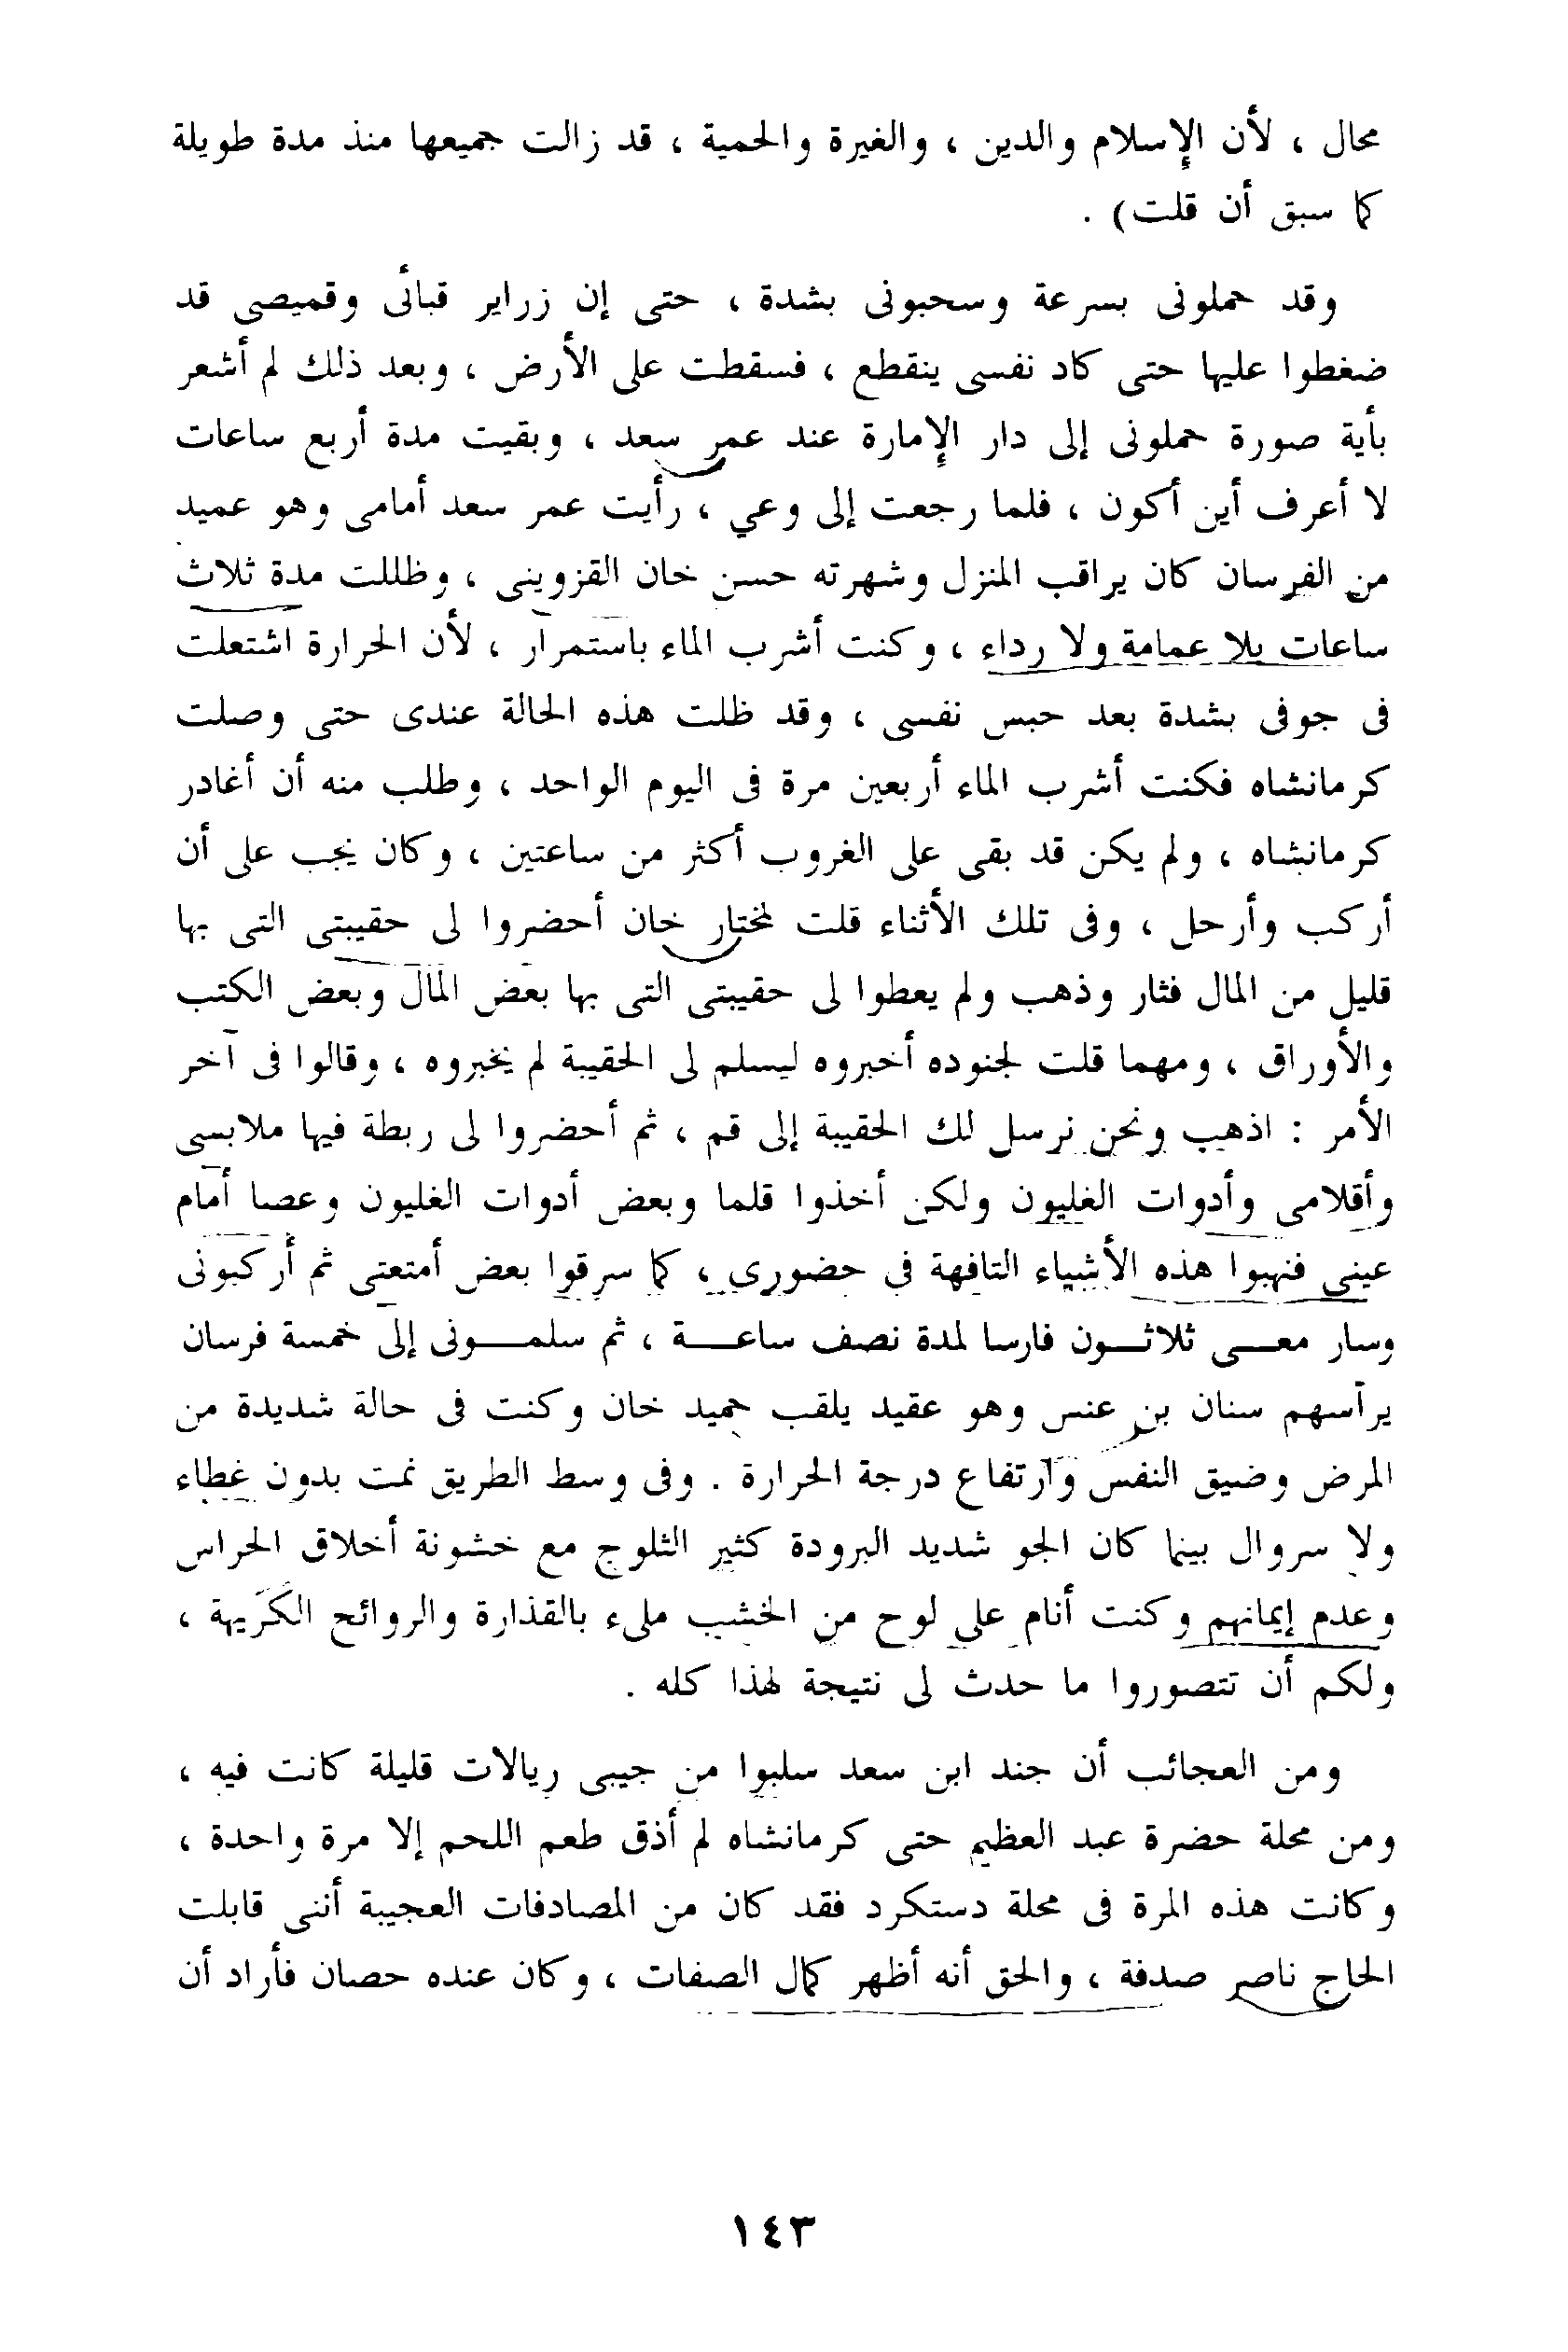 محال ، لأن الإسلام والدين ، والغيرة والحمية ، قد زالت جميعها منذ مدة طويلة
كما سبق أن قلت) .
وقد حملونى بسرعة وسحبونى بشدة ، حتى إن زراير قبائى وقميصى قد
ضغطوا عليها حتى كاد نفسى ينقطع ، فسقطت على الأرض ، وبعد ذلك لم أشعر
بأية صورة حملونى إلى دار الإمارة عند عمر سعد ، وبقيت مدة أربع ساعات
لا أعرف أين أكون ، فلما رجعت إلى وعي ، رأيت عمر سعد أمامى وهو عميد
من الفرسان كان يراقب المنزل وشهرته حسن خان القزوينى ، وظللت مدة ثلاث
ساعات بلا عمامة ولا رداء ، وكنت أشرب الماء باستمرار ، لأن الحرارة اشتعلت
فى جوفى بشدة بعد حبس نفسى ، وقد ظلت هذه الحالة عندى حتى وصلت
كرمانشاه فكنت أشرب الماء أربعين مرة فى اليوم الواحد ، وطلب منه أن أغادر
كرمانشاه ، ولم يكن قد بقى على الغروب أكثر من ساعتين ، وكان يجب على أن
أركب وأرحل ، وفى تلك الأثناء قلت لمختار خان أحضروا لى حقيبتى التى بها
قليل من المال فثار وذهب ولم يعطوا لى حقيبتى التى بها بعض المال وبعض الكتب
والأوراق ، ومهما قلت لجنوده أخبروه ليسلم لى الحقيبة لم يخبروه ، وقالوا فى آخر
الأمر : اذهب ونحن نرسل لك الحقيبة إلى قم ، ثم أحضروا لى ربطة فيها ملابسى
وأقلامى وأدوات الغليون ولكن أخذوا قلما وبعض أدوات الغليون وعصا أمام
عينى فنهبوا هذه الأشياء التافهة فى حضورى ، كما سرقوا بعض أمتعتى ثم أركبونى
وسار معـــى ثلاثـــون فارسا لمدة نصف ساعـــة ، ثم سلمـــونى إلى خمسة فرسان
يرأسهم سنان بن عنس وهو عقيد يلقب حميد خان وكنت فى حالة شديدة من
المرض وضيق النفس وارتفاع درجة الحرارة . وفى وسط الطريق نمت بدون غطاء
ولا سروال بينما كان الجو شديد البرودة كثير الثلوج مع خشونة أخلاق الحراس
وعدم إيمانهم وكنت أنام على لوح من الخشب ملىء بالقذارة والروائح الكريهة ،
ولكم أن تتصوروا ما حدث لى نتيجة لهذا كله .
ومن العجائب أن جند ابن سعد سلبوا من جيبى ريالات قليلة كانت فيه ،
ومن محلة حضرة عبد العظيم حتى كرمانشاه لم أذق طعم اللحم إلا مرة واحدة ،
وكانت هذه المرة فى محلة دستكرد فقد كان من المصادفات العجيبة أننى قابلت
الحاج ناصر صدفة ، والحق أنه أظهر كمال الصفات ، وكان عنده حصان فأراد أن
١٤٣